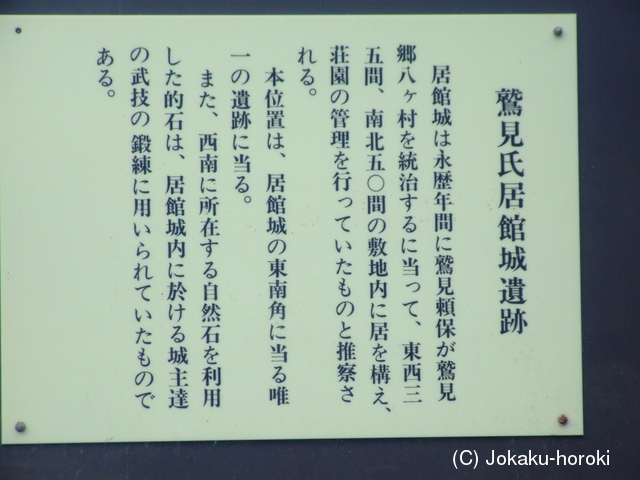 鷲見氏居館城遺跡
居館城は永歴年間に鷲見頼保が鷲見
郷八ヶ村を統治するに当って、東西三
五間、南北五〇間の敷地内に居を構え、
荘園の管理を行っていたものと推察さ
れる。
本位置は、居館城の東南角に当る唯
一の遺跡に当る。
また、西南に所在する自然石を利用
した的石は、居館城内に於ける城主達
の武技の鍛練に用いられていたもので
ある。
(C) Jokaku-horoki